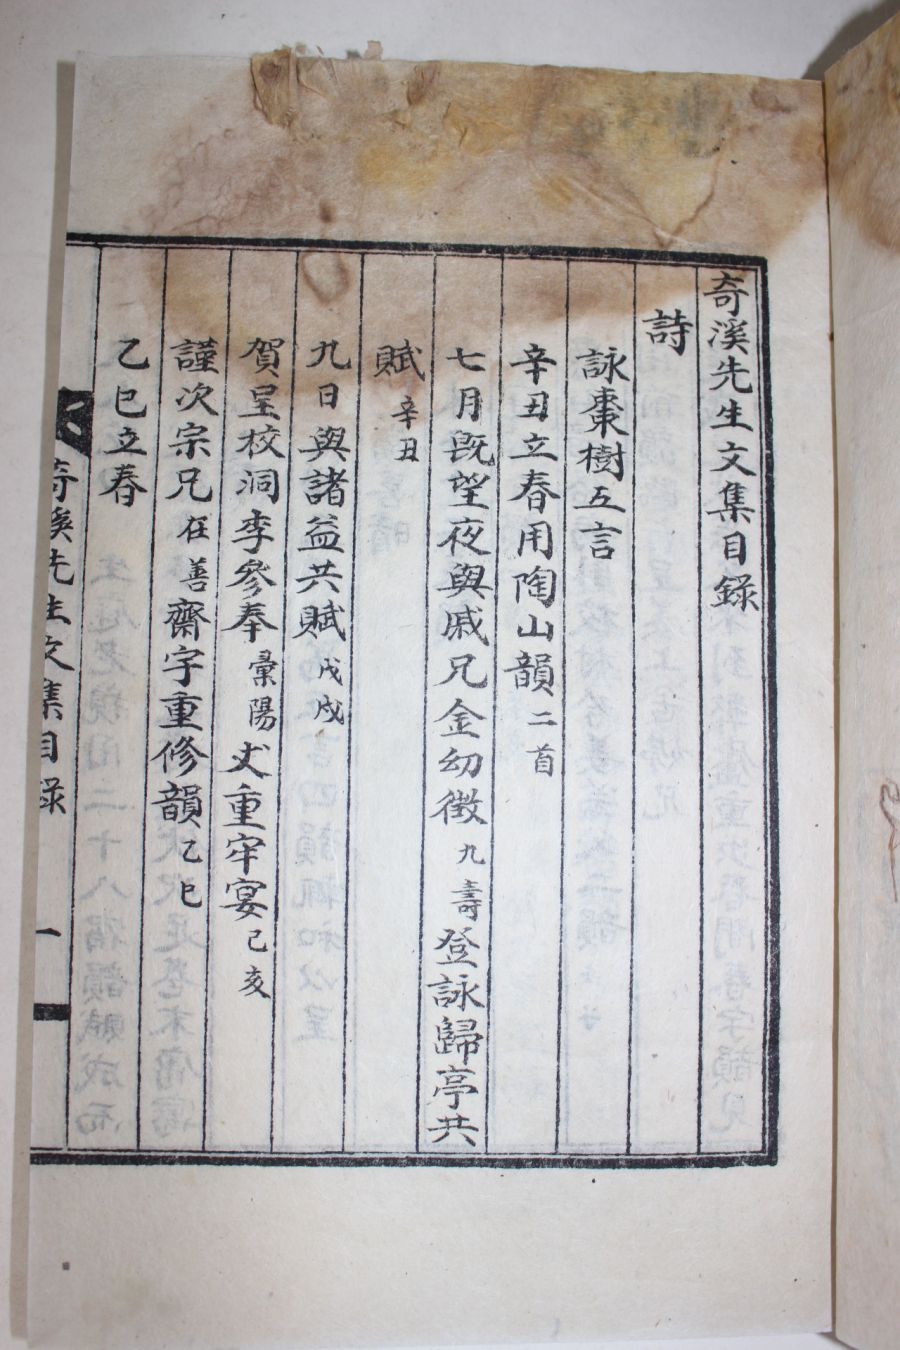 奇溪先生文集目錄
詩
詠棗樹五言
辛丑立春用陶山韻二首
七月旣望夜與戚兄金幼徵九壽登詠歸亭共
賦辛丑
九日與諸益共賦戊戌
賀呈校洞李參奉彙陽丈重牢宴己亥
謹次宗兄在善齋字重修韻乙巳
乙巳立春
奇溪先生文集目錄
一